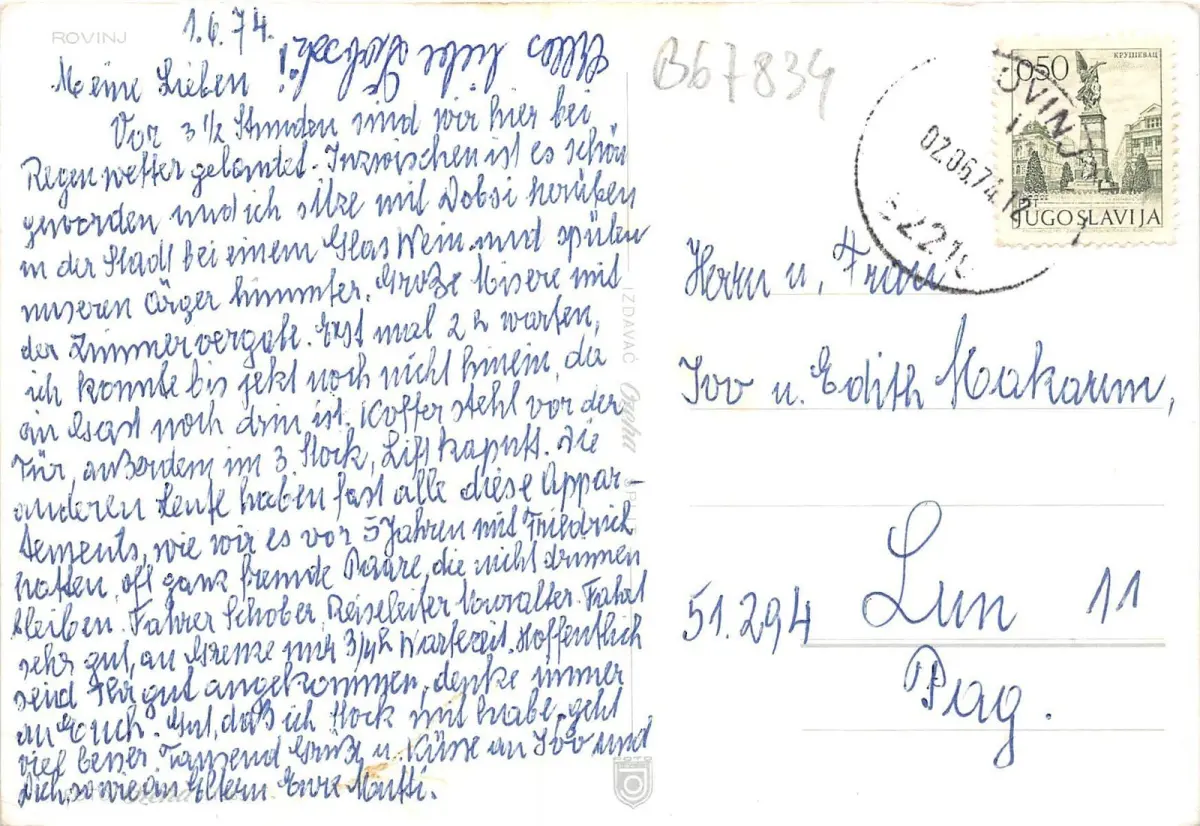 ROVINJ
1.6.74.
Meine Lieben
Vor 3 1/2 Stunden sind wir hier bei
Regenwetter gelandet. Inzwischen ist es schön
geworden und ich sitze mit Dobsi herüßen
in der Stadt bei einem Glas Wein und spülen
unseren Ärger hinunter. Große Misere mit
der Zimmervergabe. Erst mal 2 h warten,
ich konnte bis jetzt noch nicht hinein, da
ein Gast noch drin ist. Koffer steht vor der
Tür, außerdem im 3. Stock, Lift kaputt. Die
anderen Leute haben fast alle diese Appar-
tements, wie wir es vor 5 Jahren mit Friedrich
hatten, oft ganz fremde Paare, die nicht drinnen
bleiben. Fahrer Schober, Reiseleiter. Fahrt
sehr gut, an Grenze nur 3/4 h Wartezeit. Hoffentlich
seid Ihr gut angekommen, denke immer
an Euch. Gut, daß ich Stock mit habe, geht
viel besser. Tausend Grüße u. Küsse an Ivo und
Dich, sowie an Eltern Eure Mutti.
IZDAVAČ
B67834
0,50
КРУШЕВАЦ
JUGOSLAVIJA
ROVINJ
02.06.74.12
5221
Herrn u. Frau
Ivo u. Edith Makarun,
Lun 11
51.294
Pag.